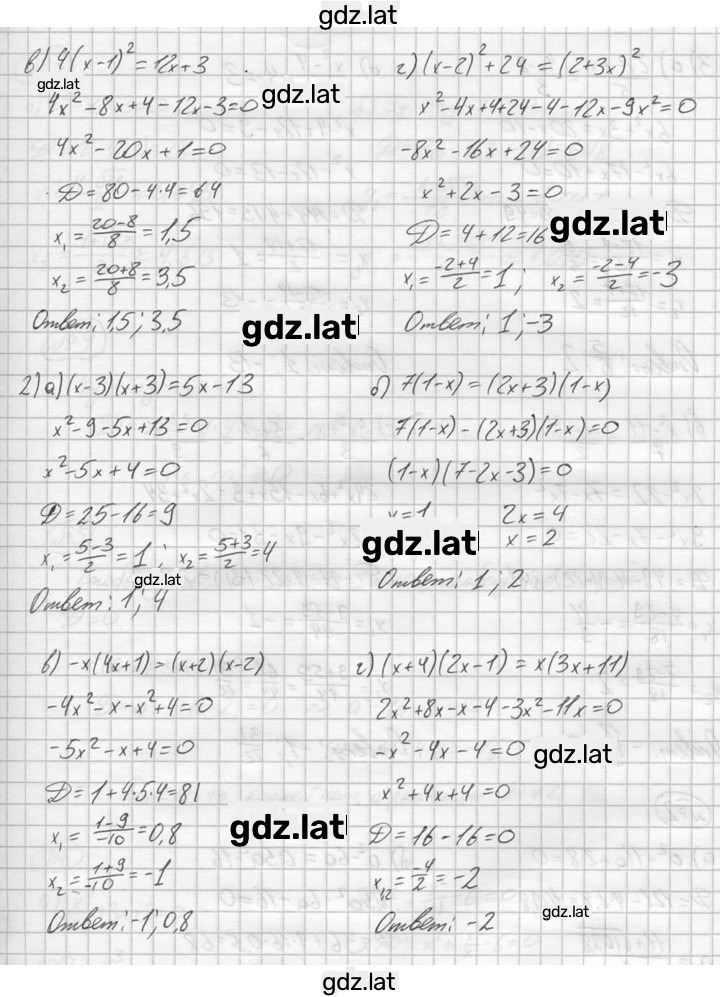 gdz.lat
в) 4(x-1)² = 12x+3
gdz.lat
4x²-8x+4-12x-3=0
4x²-20x+1=0
D=80-4·4=64
x₁ = (20-8)/8 = 1,5
x₂ = (20+8)/8 = 3,5
Ответ: 1,5; 3,5
г) (x-2)²+24 = (2+3x)²
gdz.lat
x²-4x+4+24-4-12x-9x²=0
-8x²-16x+24=0
x²+2x-3=0
D=4+12=16
gdz.lat
x₁ = (-2+4)/2 = 1; x₂ = (-2-4)/2 = -3
gdz.lat
Ответ: 1; -3
2) а) (x-3)(x+3)=5x-13
x²-9-5x+13=0
x²-5x+4=0
D=25-16=9
x₁ = (5-3)/2 = 1; x₂ = (5+3)/2 = 4
gdz.lat
Ответ: 1; 4
б) 7(1-x)=(2x+3)(1-x)
7(1-x)-(2x+3)(1-x)=0
(1-x)(7-2x-3)=0
x=1 2x=4
gdz.lat x=2
Ответ: 1; 2
в) -x(4x+1)=(x+2)(x-2)
-4x²-x-x²+4=0
-5x²-x+4=0
D=1+4·5·4=81
x₁ = (1-9)/-10 = 0,8
gdz.lat
x₂ = (1+9)/-10 = -1
Ответ: -1; 0,8
г) (x+4)(2x-1) = x(3x+11)
2x²+8x-x-4-3x²-11x=0
-x²-4x-4=0
gdz.lat
x²+4x+4=0
D=16-16=0
x₁,₂ = -4/2 = -2
Ответ: -2
gdz.lat
gdz.lat